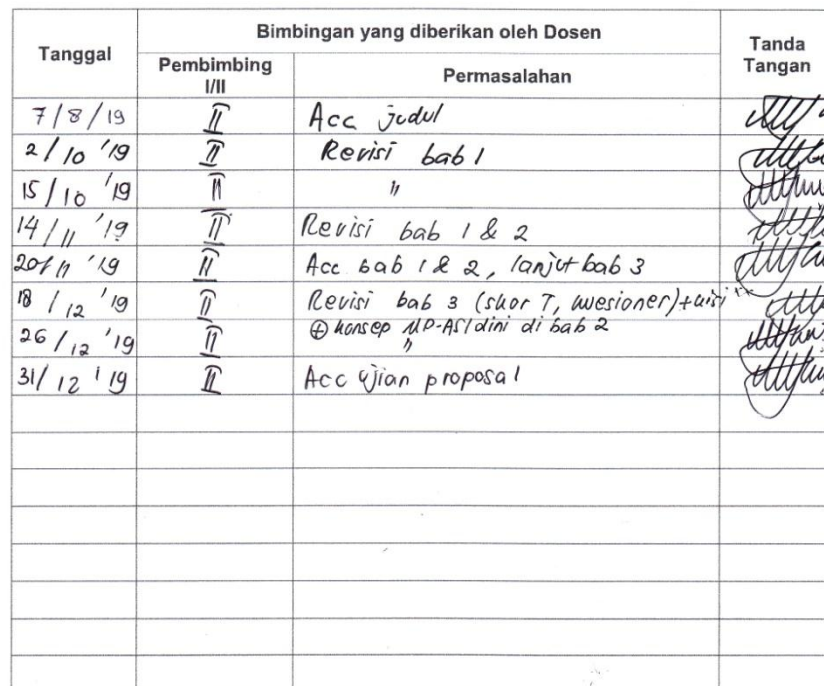 Tanggal
Bimbingan yang diberikan oleh Dosen
Tanda
Tangan
Pembimbing
I/II
Permasalahan
7/8/19 II Acc judul
2/10 '19 II Revisi bab 1
15/10 '19 II "
14/11 '19 II Revisi bab 1 & 2
20/11 '19 II Acc bab 1 & 2, lanjut bab 3
18/12 '19 II Revisi bab 3 (skor T, kuesioner)+kisi"
⊕ konsep MP-ASI dini di bab 2
26/12 '19 II "
31/12 '19 II Acc ujian proposal